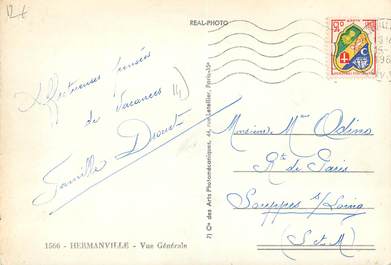 REAL-PHOTO
Affectueuses pensées
de Vacances
Famille Drouet
1566 - HERMANVILLE - Vue Générale
Cie des Arts Photomécaniques, 44, rue Letellier, Paris-15e
Monsieur Mme Odino
Rte de Paris
Souppes s/Loing
(S et M)